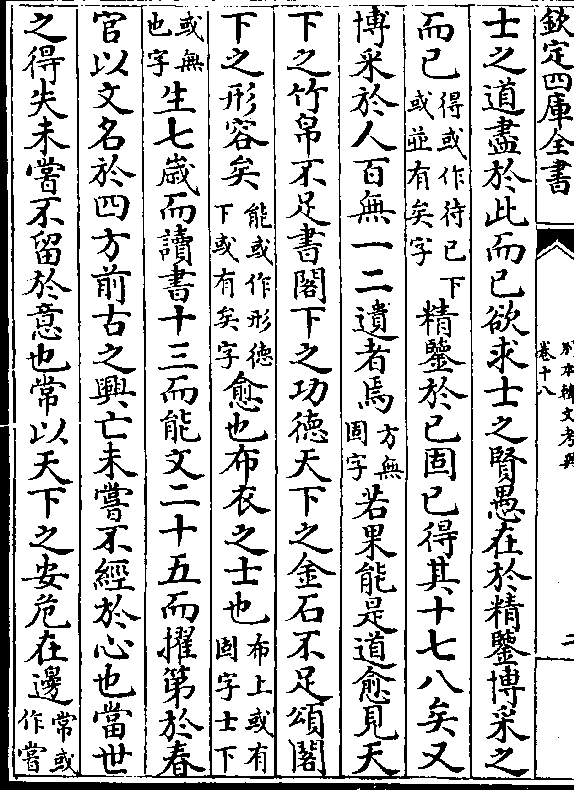 欽定四庫全書
別本韓文考異
卷十八
二
士之道盡於此而已欲求士之賢愚在於精鑒博采之
而已得或作待已下或並有矣字精鑒於已固已得其十七八矣又
博采於人百無一二遺者焉方無固字若果能是道愈見天
下之竹帛不足書閣下之功德天下之金石不足頌閣
下之形容矣能或作形德下或有矣字愈也布衣之士也布上或有固字士下
或無也字生七歲而讀書十三而能文二十五而擢第於春
官以文名於四方前古之興亡未嘗不經於心也當世
之得失未嘗不留於意也常以天下之安危在邊常或作嘗